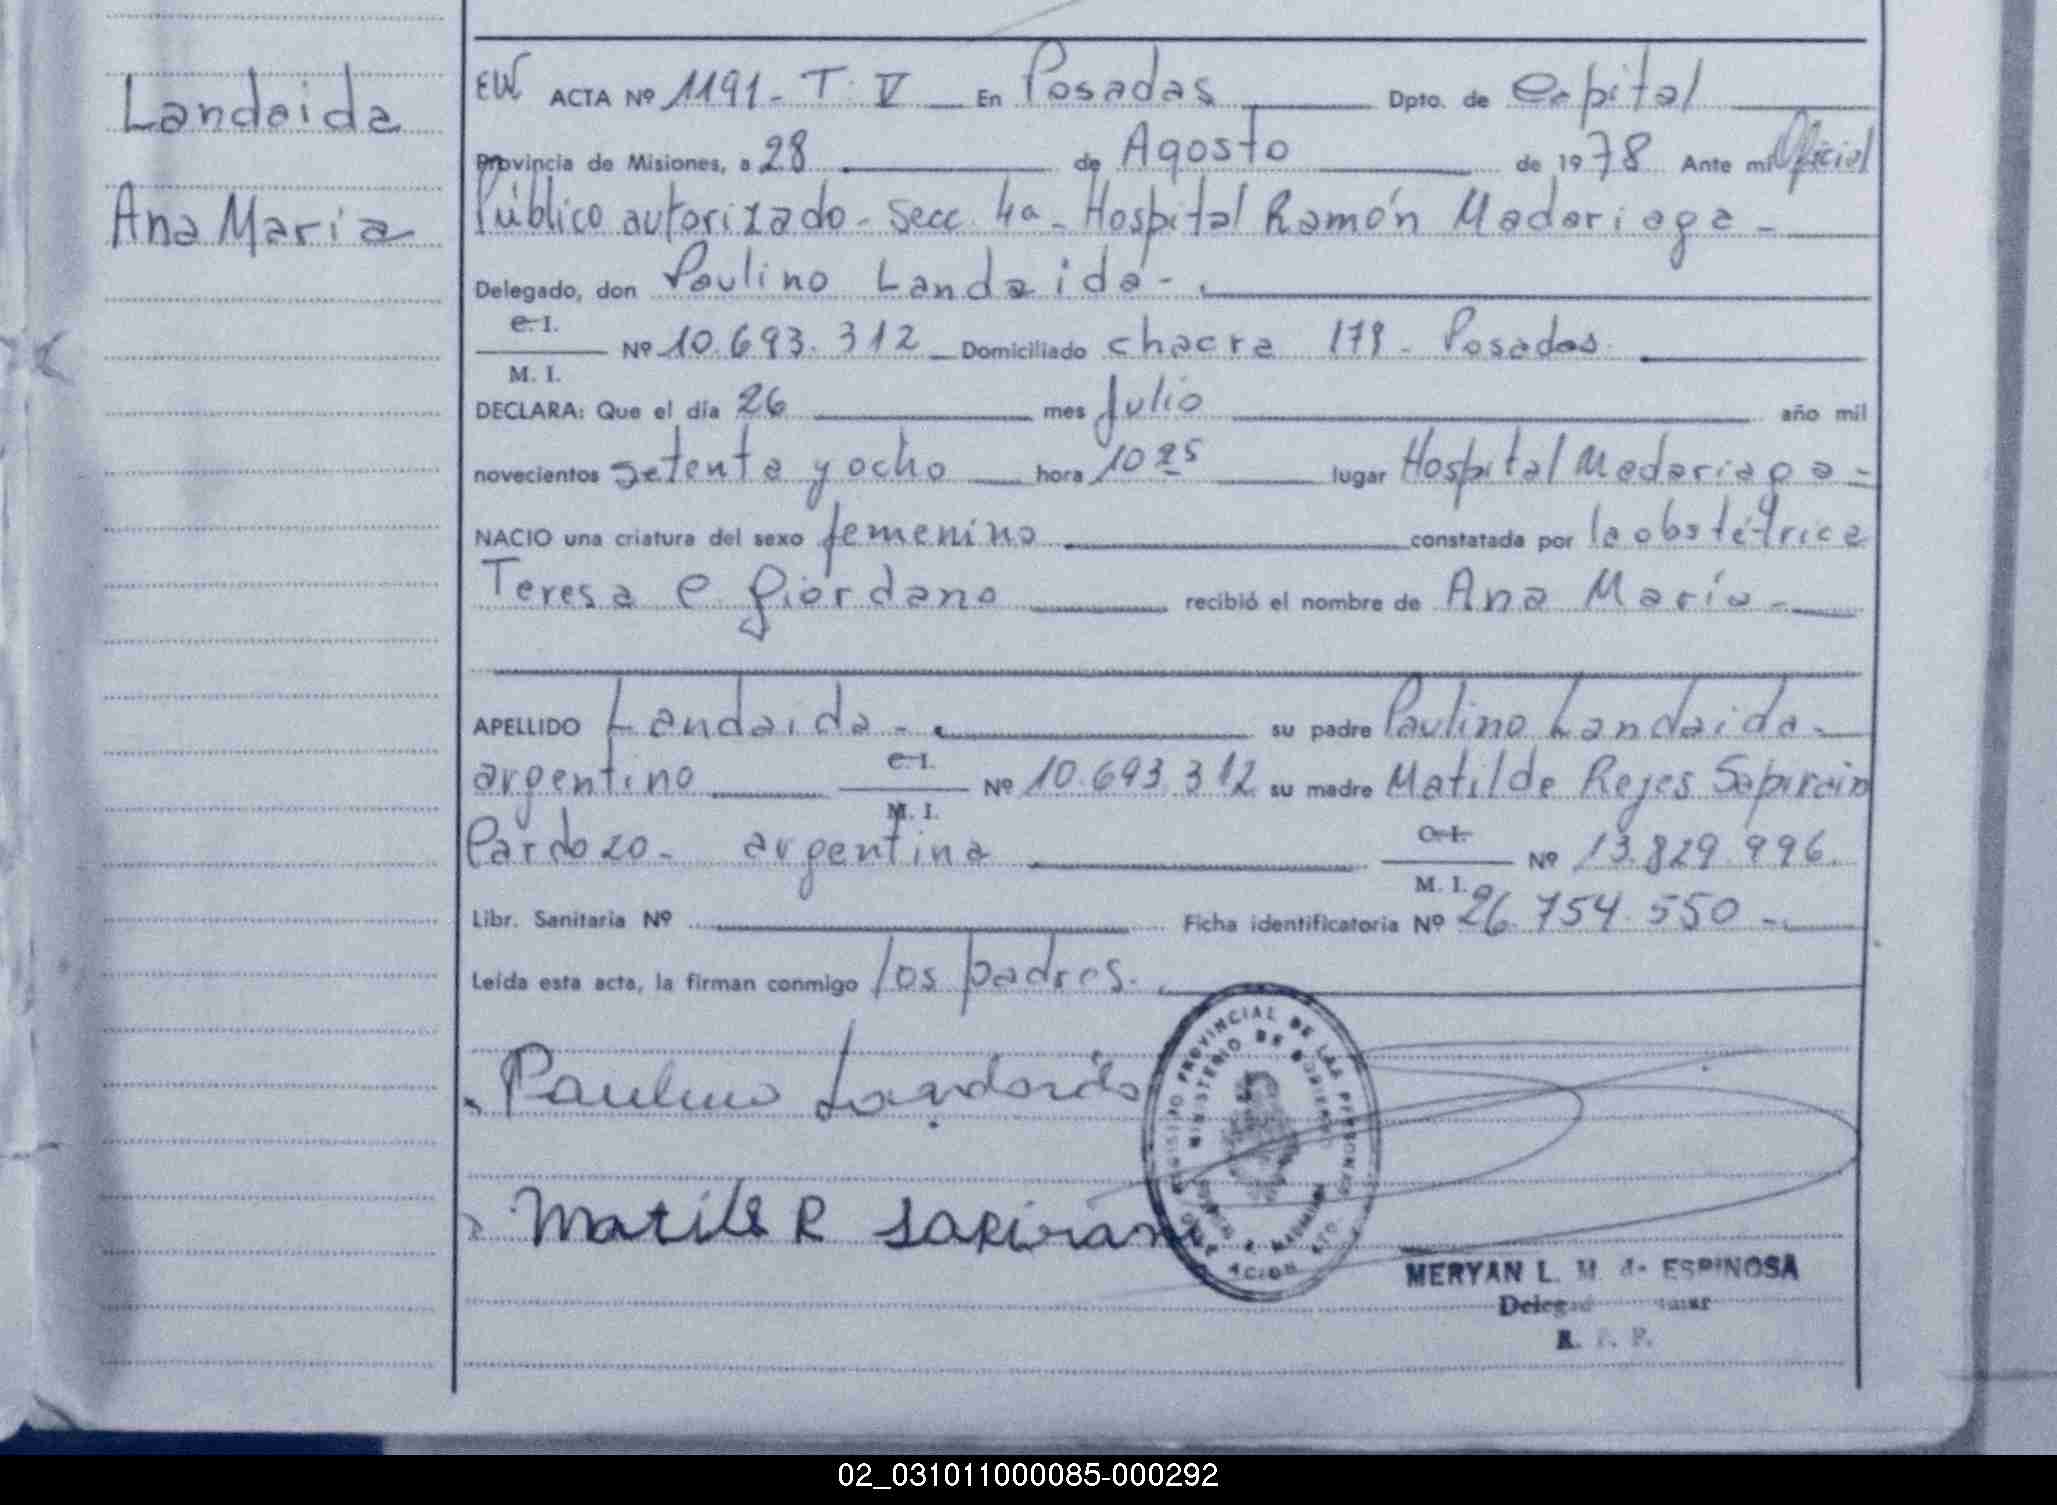 Landaida
Ana María
EW ACTA Nº 1191 - T. V En Posadas Dpto. de Capital
Provincia de Misiones, a 28 de Agosto de 1978 Ante mi Oficial
Público autorizado - Secc. 4a - Hospital Ramón Madariaga -
Delegado, don Paulino Landaida -
C. I.
Nº 10.693.312 Domiciliado chacra 179 - Posadas.
M. I.
DECLARA: Que el día 26 mes Julio año mil
novecientos setenta y ocho hora 10 25 lugar Hospital Madariaga -
NACIO una criatura del sexo femenino constatada por la obstétrica
Teresa C. Giordano recibió el nombre de Ana María -
APELLIDO Landaida - su padre Paulino Landaida -
C. I.
argentino Nº 10.693.312 su madre Matilde Reyes Sapirain
M. I.
C. I.
Cardozo - argentina Nº 13.829.996.
M. I.
Libr. Sanitaria Nº Ficha identificatoria Nº 26.754.550 -
Leída esta acta, la firman conmigo los padres.
Paulino Landaida
Matilde R Sapirain
REGISTRO PROVINCIAL DE LAS PERSONAS
MINISTERIO DE GOBIERNO
MERYAN L. M. de ESPINOSA
R. P. P.
02_031011000085-000292